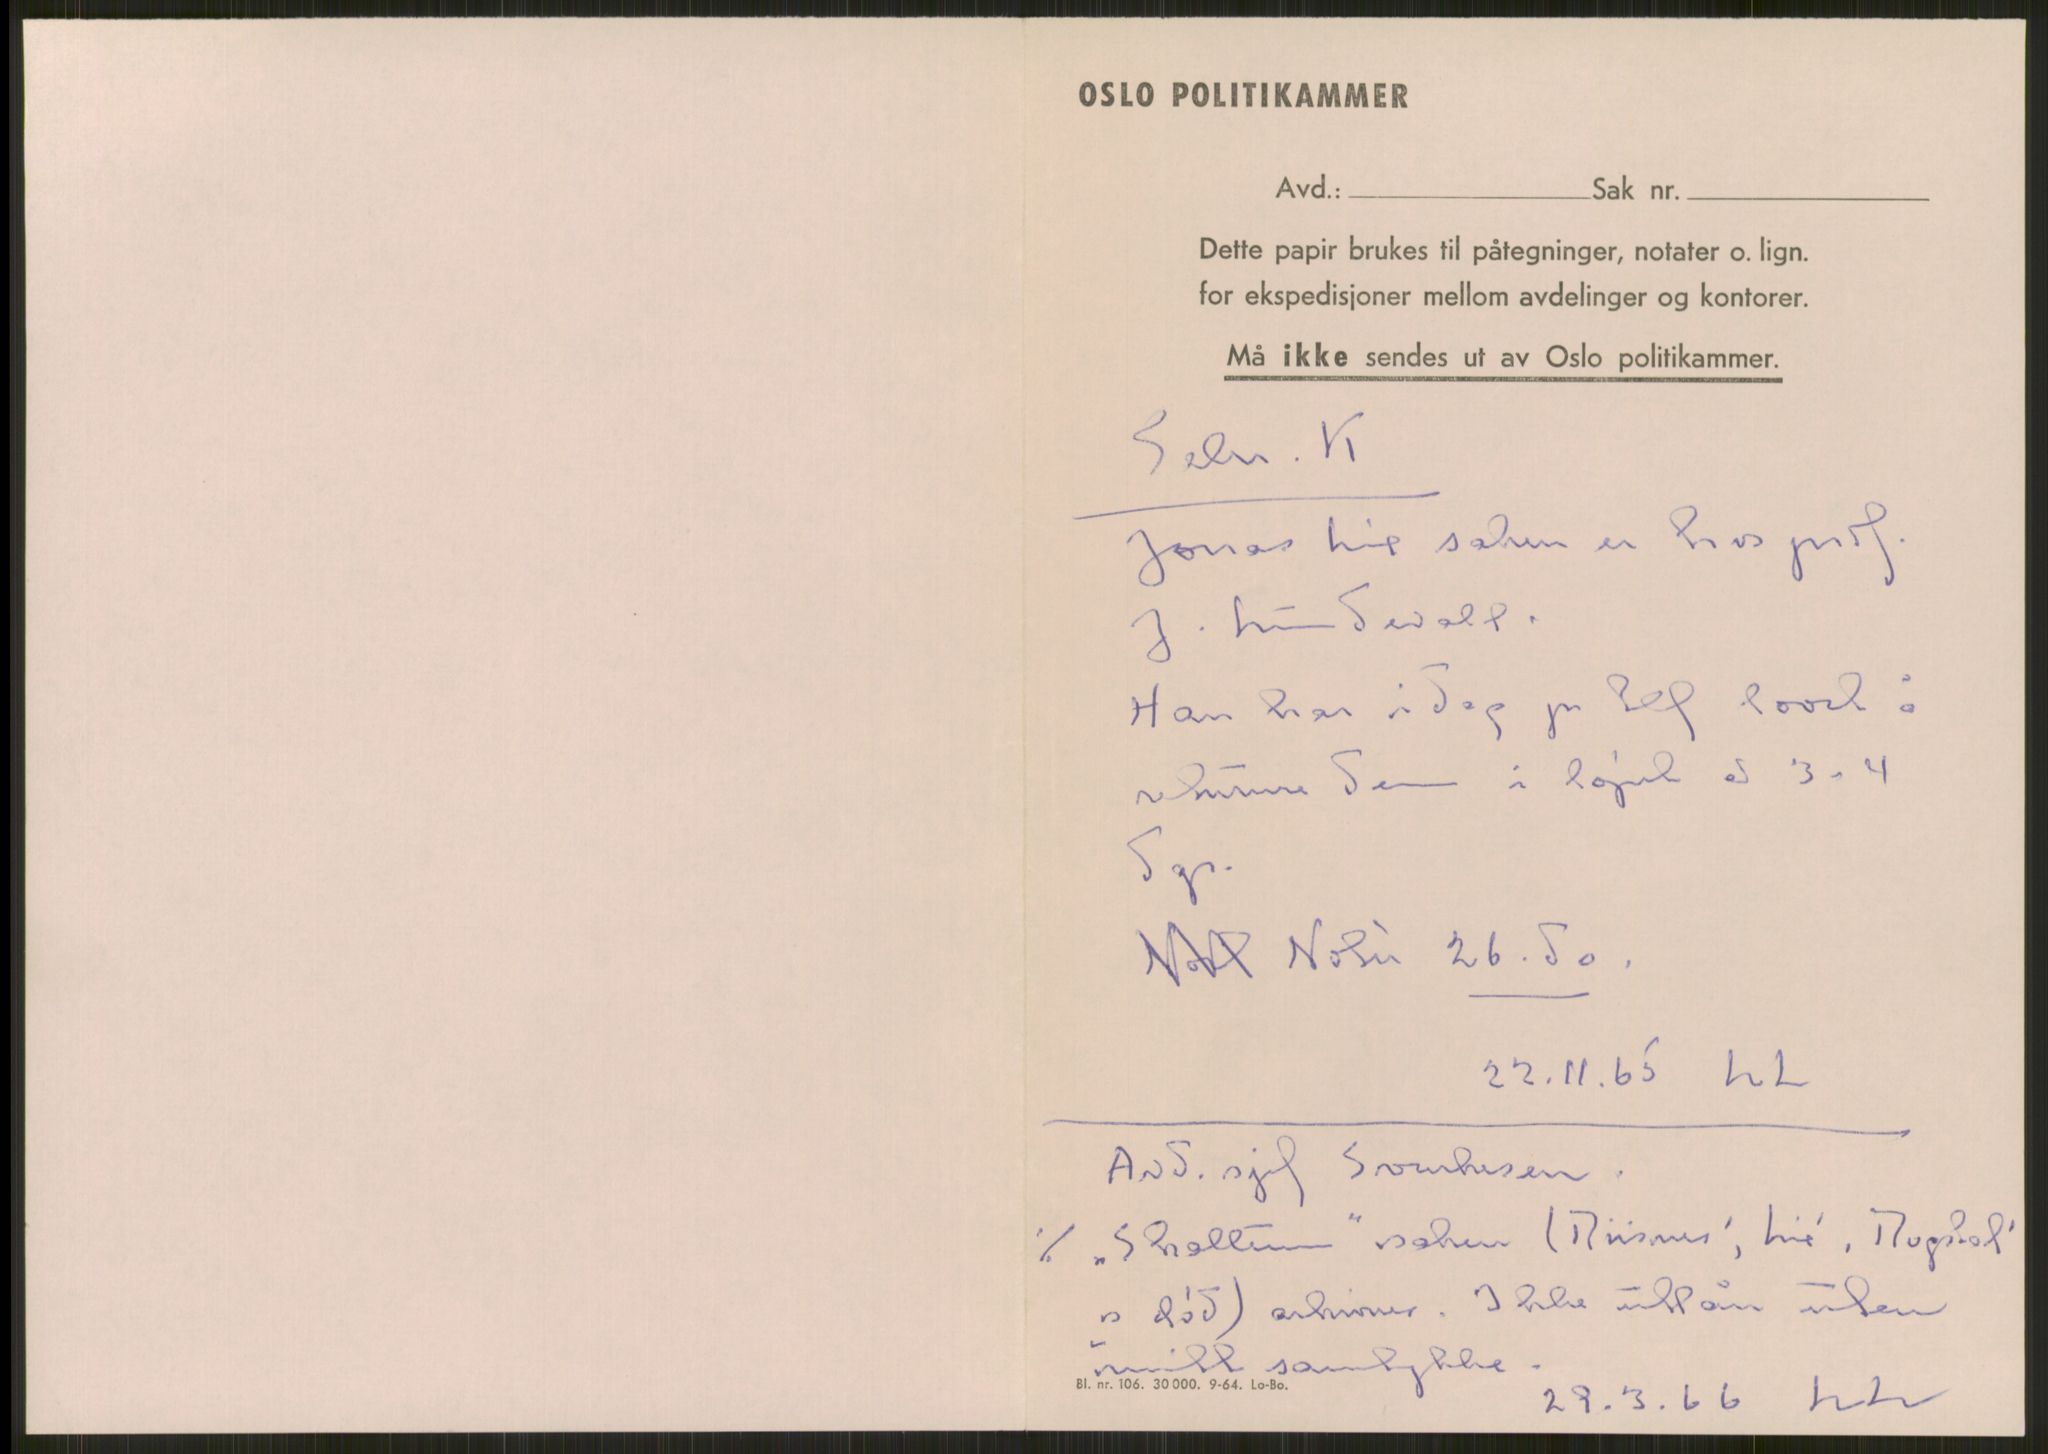 OSLO POLITIKAMMER
Avd.: Sak nr.
Dette papir brukes til påtegninger, notater o. lign.
for ekspedisjoner mellom avdelinger og kontorer.
Må ikke sendes ut av Oslo politikammer.
Sekr. K
Jonas Lie saken er hos prof.
J. Lundevall.
Han har idag pr tlf lovet å
returnere den i løpet av 3-4
dgr.
Notér 26.
22.11.65 LL
Avd. sjef
% "Skallum" saken (Riisnes', Lie', Rogstad'
s død) arkiveres. Ikke utlån uten
mitt samtykke.
Bl. nr. 106. 30 000. 9-64. Lo-Bo.
29.3.66 LL